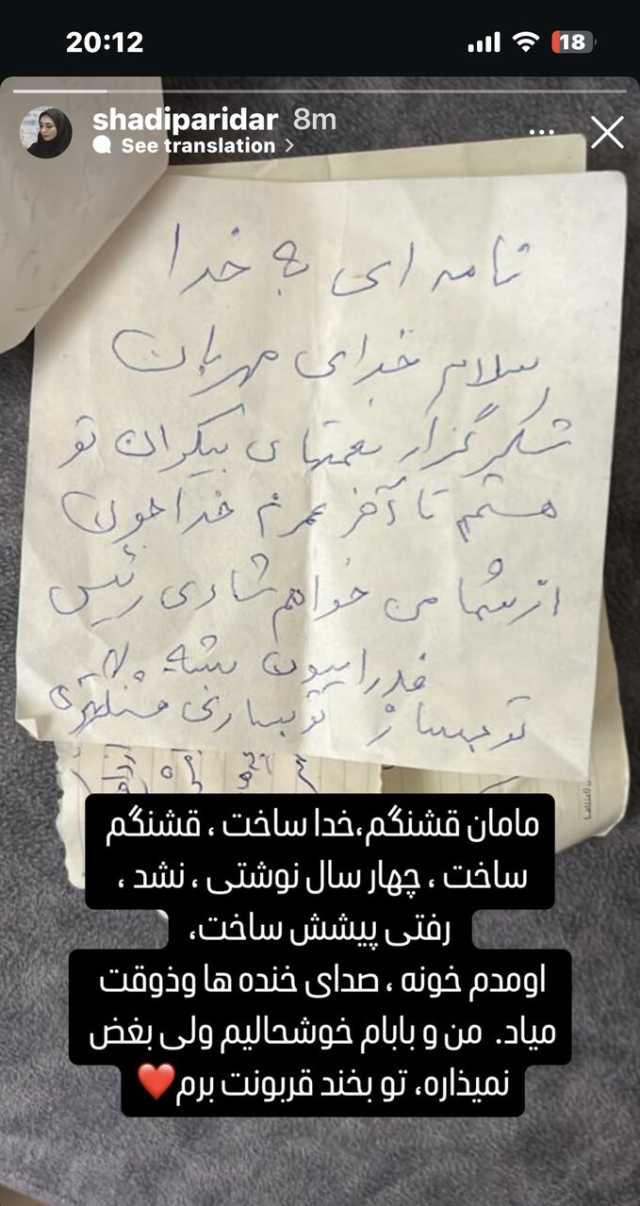 20:12
18
shadiparidar 8m
See translation >
نامه ای به خدا
سلام خدای مهربان
شکر گزار نعمتهای بیکران تو
هستم تا آخر عمرم خدا جون
از شما می خواهم شادی رئیس
فدراسیون بشه
تو بسازی قشنگتره
مامان قشنگم،خدا ساخت ، قشنگم
ساخت ، چهار سال نوشتی ، نشد ،
رفتی پیشش ساخت،
اومدم خونه ، صدای خنده ها وذوقت
میاد. من و بابام خوشحالیم ولی بغض
نمیذاره، تو بخند قربونت برم❤️